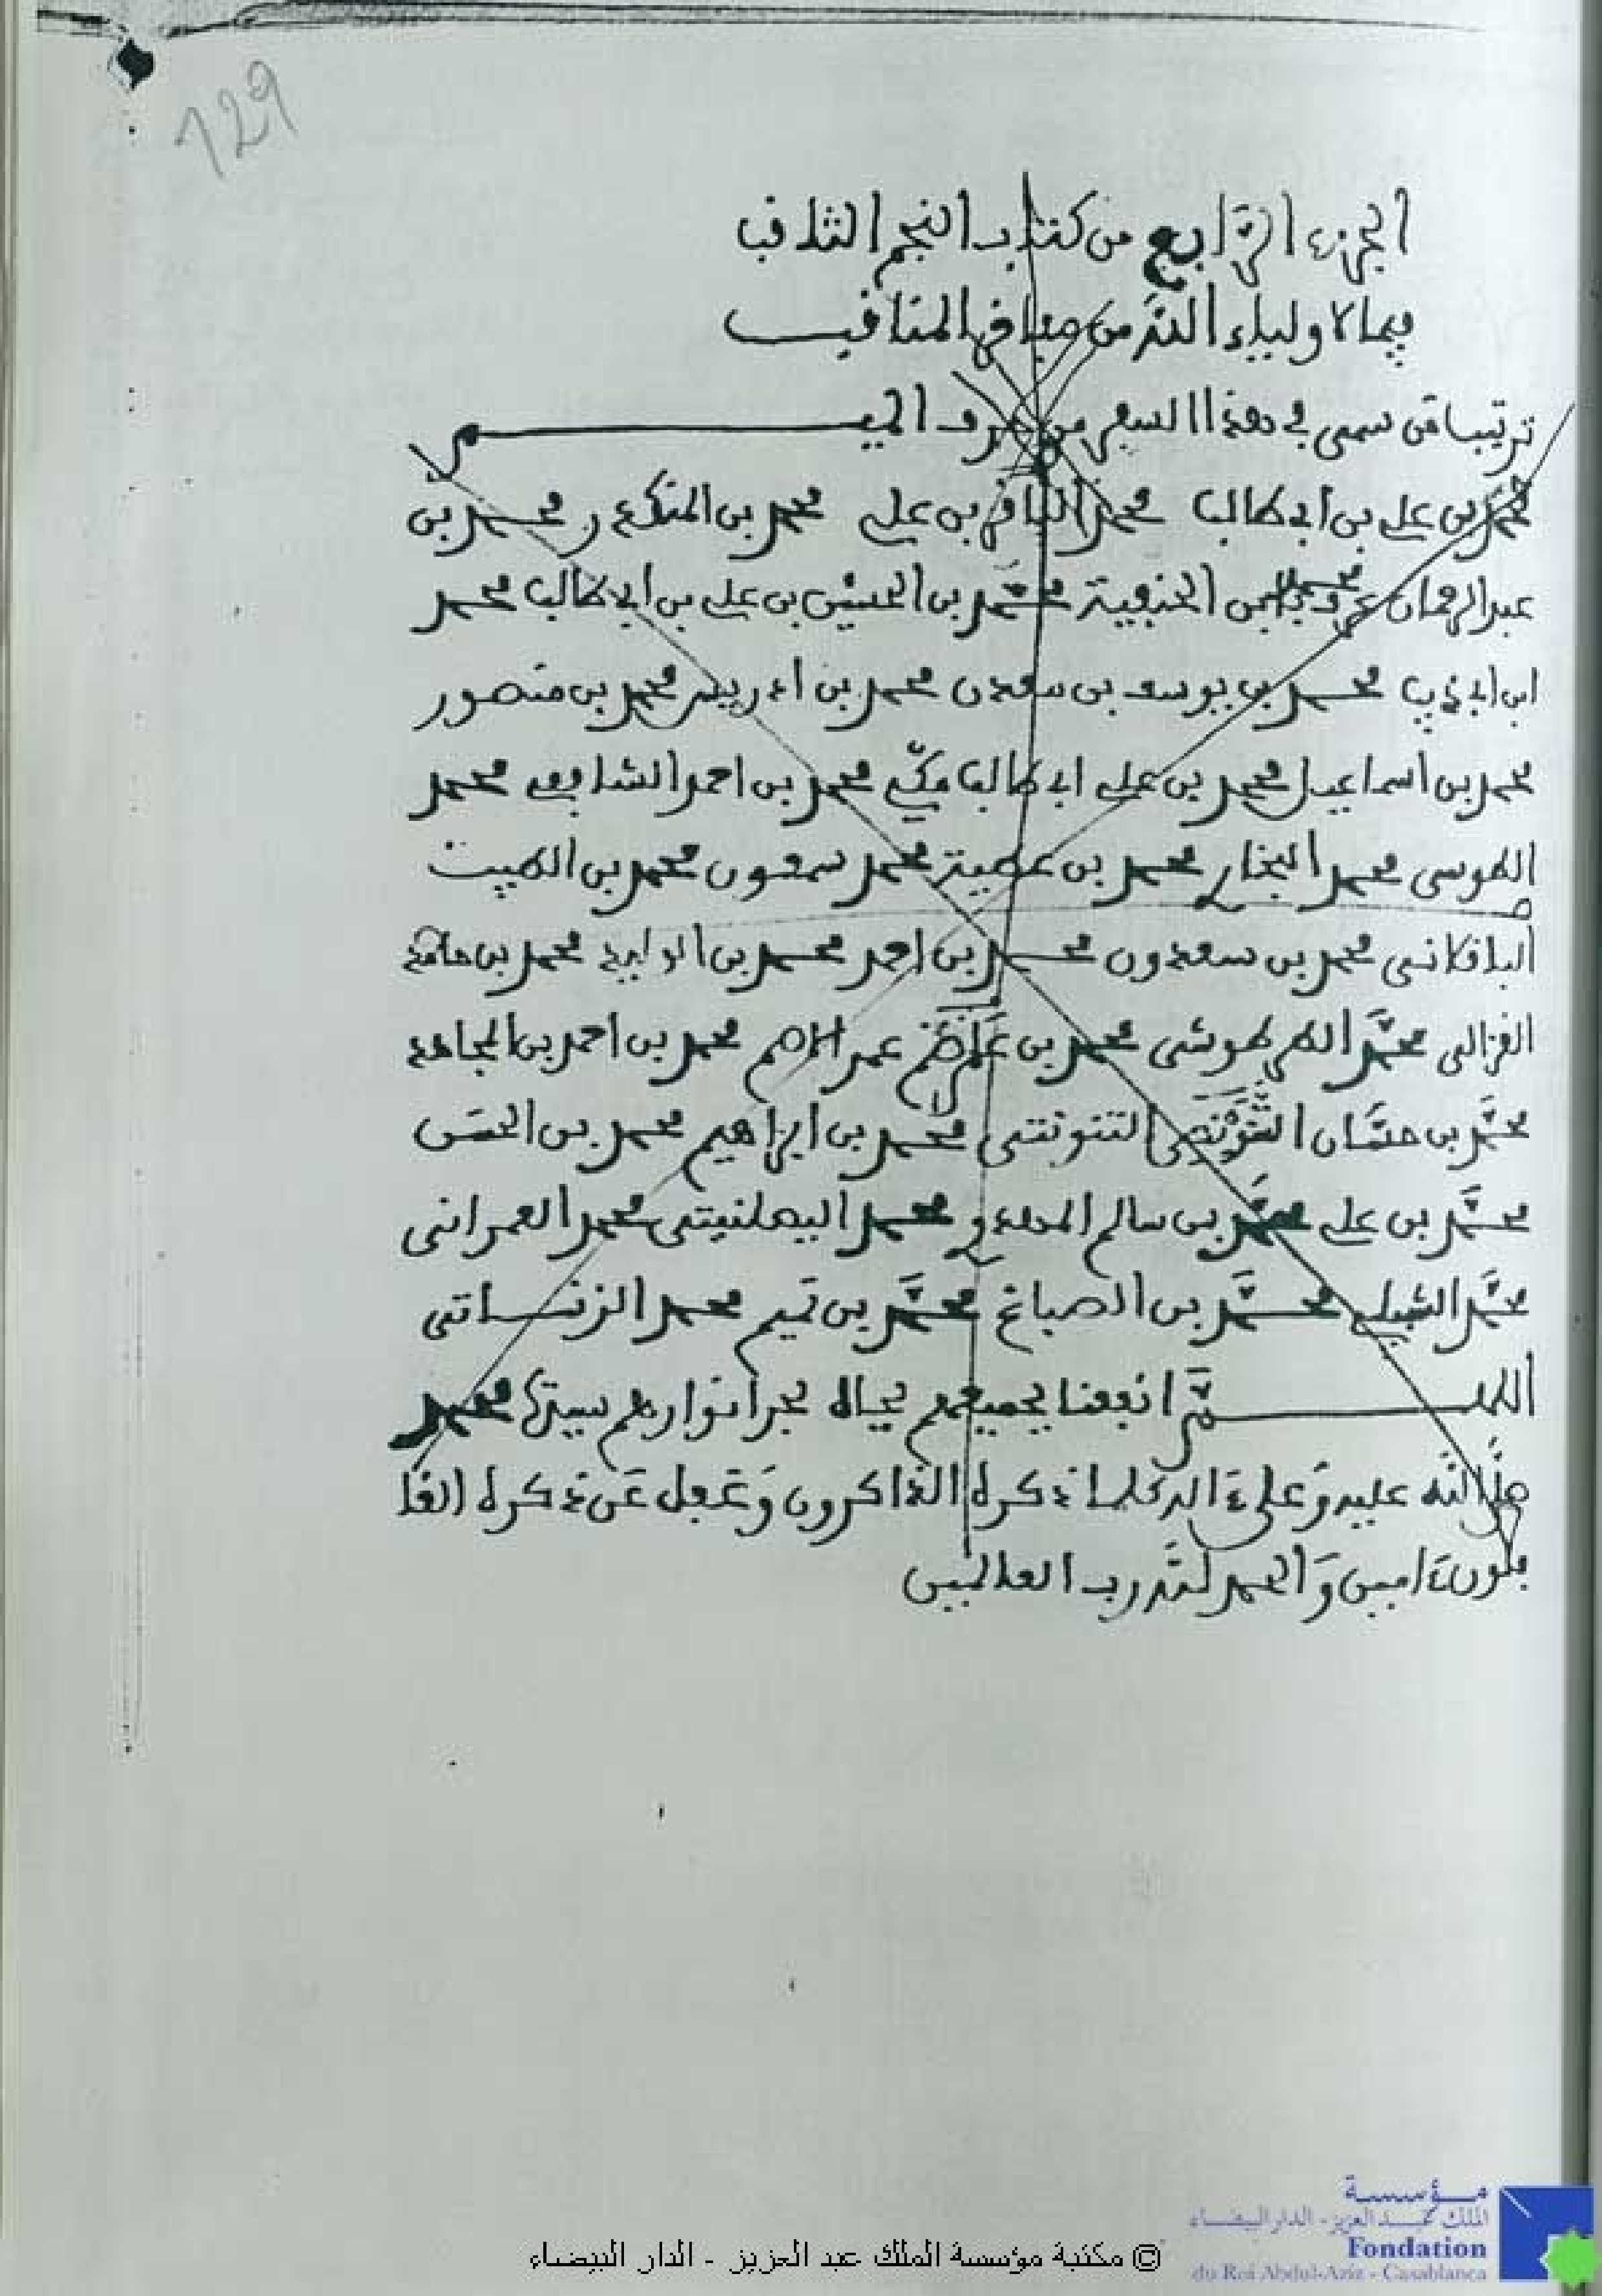 129
الجزء الرابع من كتاب النجم الثاقب
فيما لاولياء الله من مفاخر المناقب
ترتيب من سمى في هذا السفر من حرف الميم
محمد بن علي بن ابي طالب محمد الباقر بن علي محمد بن المنكدر محمد بن
عبد الرحمان الحنفية محمد بن الحسين بن علي بن ابي طالب محمد
ابن ابي ذيب محمد بن يوسف بن سعدن محمد بن ادريس محمد بن منصور
محمد بن اسماعيل محمد بن علي ابي طالب مكي محمد بن احمد الشافعي محمد
الطوسي محمد البخاري محمد بن عطية محمد سمعون محمد بن الطيب
الباقلاني محمد بن سعدون محمد بن احمد محمد بن الوليد محمد بن حامد
الغزالي محمد الطرطوشي محمد بن عمر الاصم محمد بن احمد بن المجاهد
محمد بن حسان التونسي محمد بن ابراهيم محمد بن الحسن
محمد بن علي محمد بن سالم محمد محمد العمراني
محمد الشبلي محمد بن الصباغ محمد بن تميم محمد الزناتي
اللهم انفعنا بجميعهم بجاه بحر انوارهم سيدنا محمد
صلى الله عليه وعلى ءاله كلما ذكره الذاكرون وغفل عن ذكره الغا
فلون ءامين والحمد لله رب العالمين
© مكتبة مؤسسة الملك عبد العزيز - الدار البيضاء
مؤسسة
الملك عبد العزيز - الدار البيضاء
Fondation
du Roi Abdul-Aziz - Casablanca